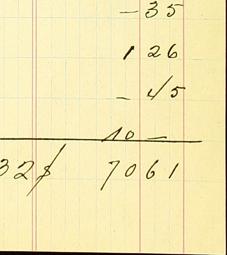 - 35
1 26
- 45
10 -
32 7061